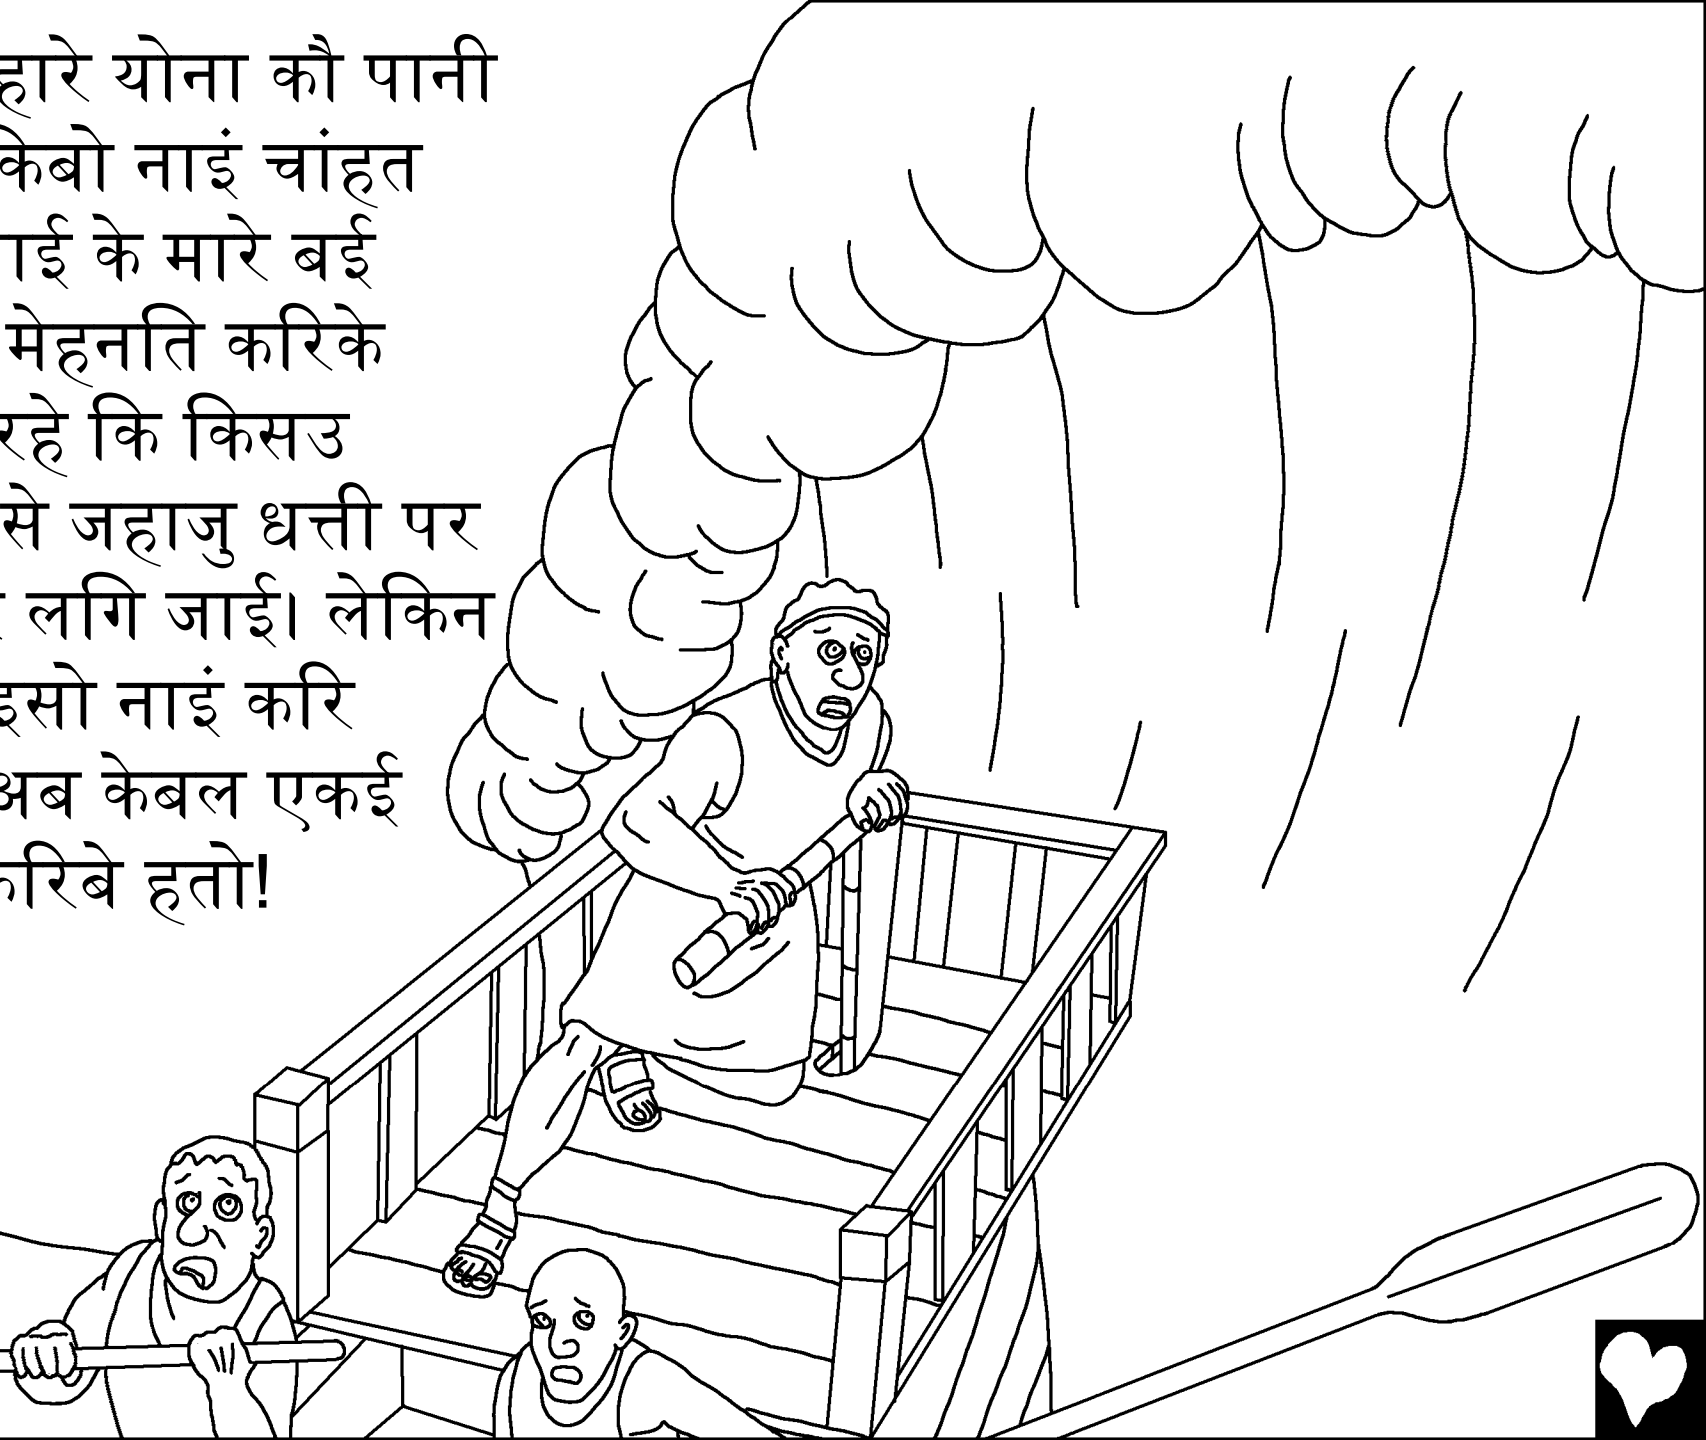 हारे योना कौ पानी
किबो नाइं चांहत
ाई के मारे बई
मेहनति करिके
रहे कि किसउ
से जहाजु धत्ती पर
लगि जाई। लेकिन
इसो नाइं करि
अब केबल एकई
करिबे हतो!